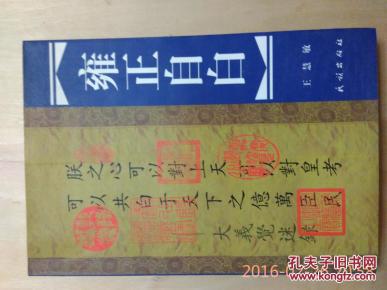 雍正自白
王慧敏
民族出版社
朕之心可以對上天可以對皇考
可以共白于天下之億萬臣民
大義覺迷錄
2016